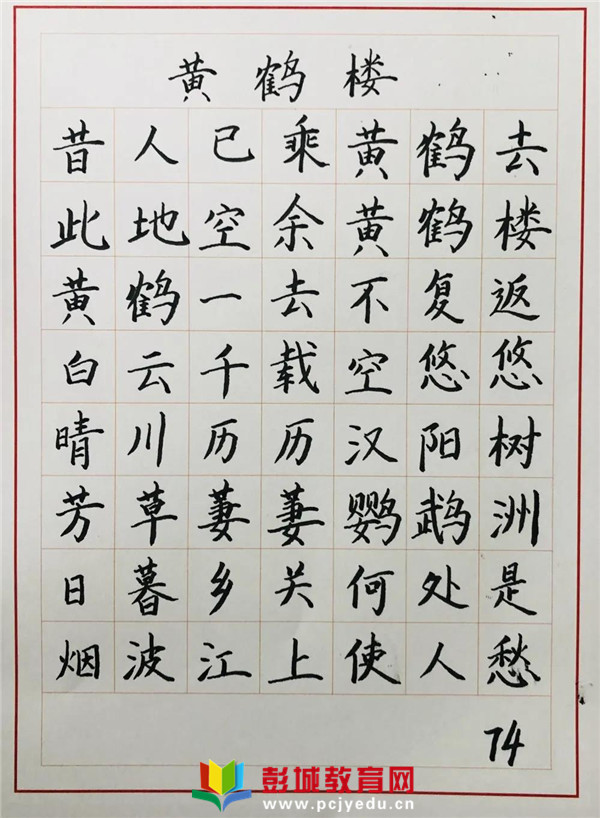 黄鹤楼
昔人已乘黄鹤去
此地空余黄鹤楼
黄鹤一去不复返
白云千载空悠悠
晴川历历汉阳树
芳草萋萋鹦鹉洲
日暮乡关何处是
烟波江上使人愁
74
彭城教育网
www.pcjyedu.cn